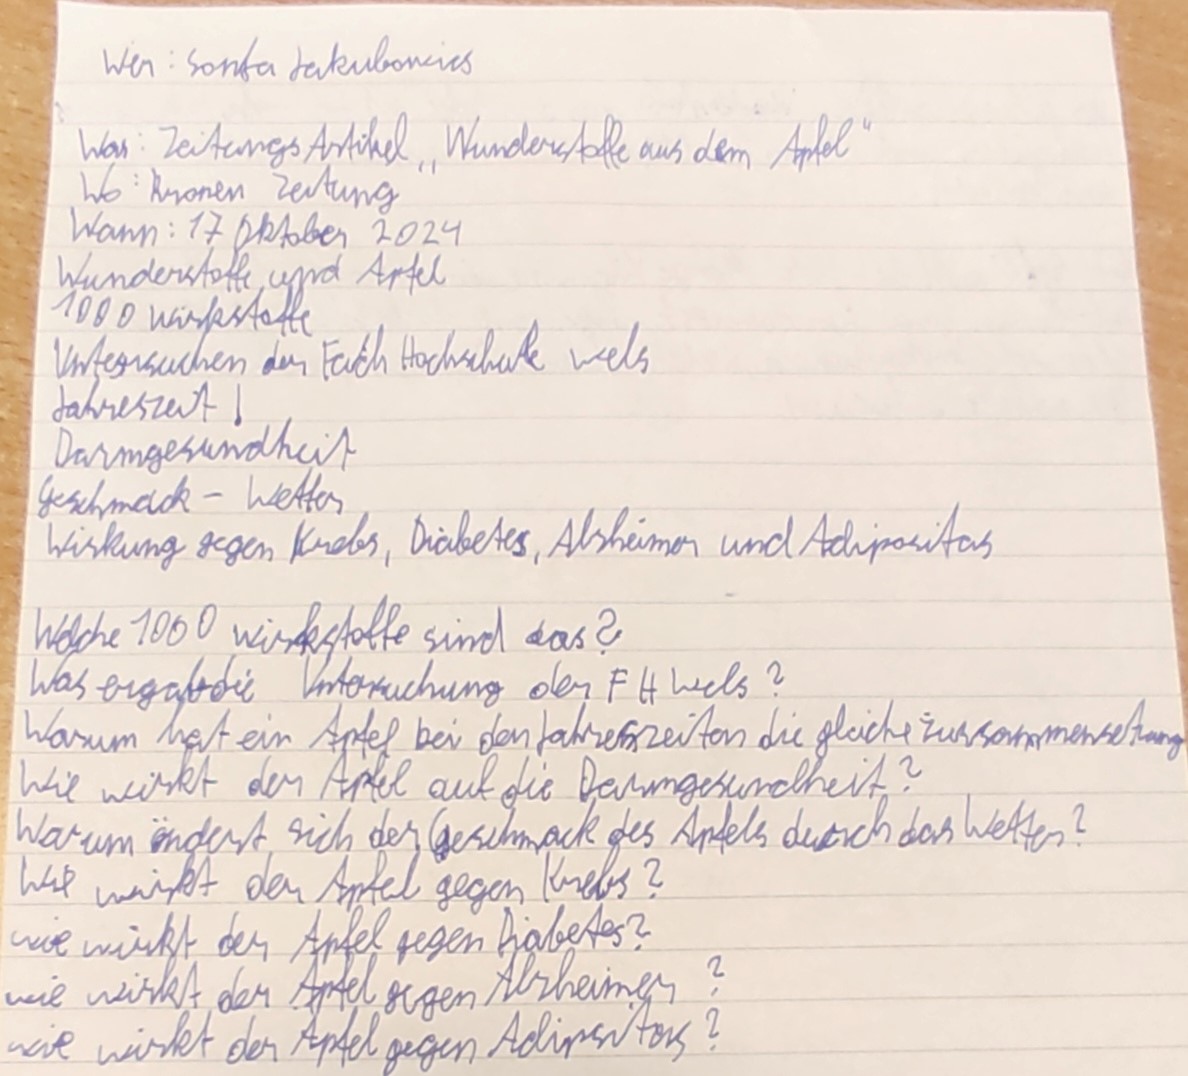 Wer: Sonja Jakubowics
Was: Zeitungs Artikel „Wunderstoffe aus dem Apfel“
Wo: Kronen Zeitung
Wann: 17 Oktober 2024
Wunderstoffe und Apfel
1000 wirkstoffe
Untersuchen der Fach Hochschule wels
Jahreszeit!
Darmgesundheit
Geschmack - Wetter
Wirkung gegen Krebs, Diabetes, Alzheimer und Adipositas
Welche 1000 wirkstoffe sind das?
Was ergab die Untersuchung der FH Wels?
Warum hat ein Apfel bei den Jahreszeiten die gleiche zussammensetzung
Wie wirkt der Apfel auf die Darmgesundheit?
Warum ändert sich der Geschmack des Apfels durch das Wetter?
Wie wirkt der Apfel gegen Krebs?
wie wirkt der Apfel gegen Diabetes?
wie wirkt der Apfel gegen Alzheimer?
wie wirkt der Apfel gegen Adipsitas?